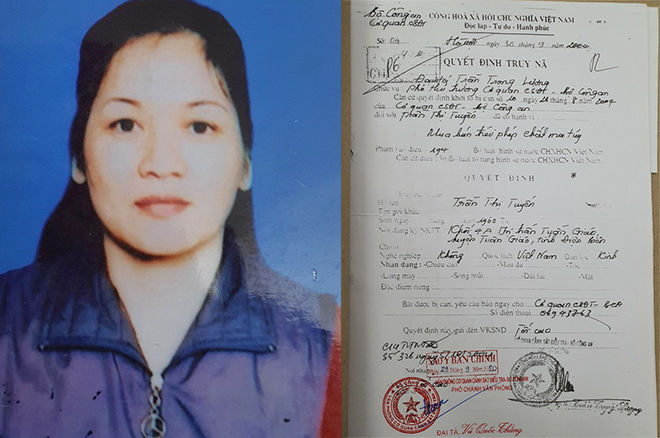 Bộ Công an
Cơ quan CSĐT
CỘNG HOÀ XÃ HỘI CHỦ NGHĨA VIỆT NAM
Độc lập - Tự do - Hạnh phúc
Số 04
Hà Nội ngày 30 tháng 9 năm 2004
QUYẾT ĐỊNH TRUY NÃ
Đại tá Trần Trọng Lượng
Chức vụ: Phó thủ trưởng Cơ quan CSĐT - Bộ Công an
Căn cứ quyết định khởi tố bị can số 10 ngày
của Cơ quan CSĐT - Bộ Công an
đối với Trần Thị Tuyến
đã có hành vi
Mua bán trái phép chất ma túy
Phạm vào điều 194 Bộ luật hình sự nước CHXHCN Việt Nam.
Căn cứ điều Bộ luật tố tụng hình sự nước CHXHCN Việt Nam.
QUYẾT ĐỊNH
Họ tên Trần Thị Tuyến
Tên gọi khác
Sinh ngày 1960
Nơi đăng ký NKTT Khối 4A Thị trấn Tuần Giáo,
Chỗ ở huyện Tuần Giáo, tỉnh Điện Biên
Nghề nghiệp Không Quốc tịch Việt Nam Dân tộc Kinh
Nhận dạng: - Chiều cao Màu da Tóc
Lông mày Sống mũi Dái tai Mắt
Đặc điểm riêng:
Bắt được bị can, yêu cầu báo ngay cho Cơ quan CSĐT - BCA
Số điện thoại 069 43763
Quyết định này gửi đến VKSND Tối cao
CƠ QUAN CẢNH SÁT ĐIỀU TRA - BỘ CÔNG AN
SAO Y BẢN CHÍNH
Nơi nhận
PHÓ CHÁNH VĂN PHÒNG
ĐẠI TÁ Vũ Quốc Thắng
Trần Trọng Lượng